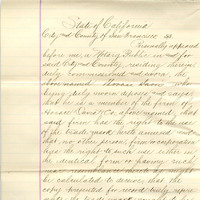 State of California
City and County of San Francisco ss
Personally appeared
before me, a Notary Public in and for
said City and County, residing therein
duly commissioned and sworn, the
above named
being duly sworn deposes and says
that he is a member of the firm of
Horace Davis & Co. aforenamed, that
said firm has the right to the use
of the trade mark
that no other person firm or corporation
has the right to such use either in
the identical form or having such
near resemblance thereto as might
be calculated to deceive, that the
copy presented for record truly repre-